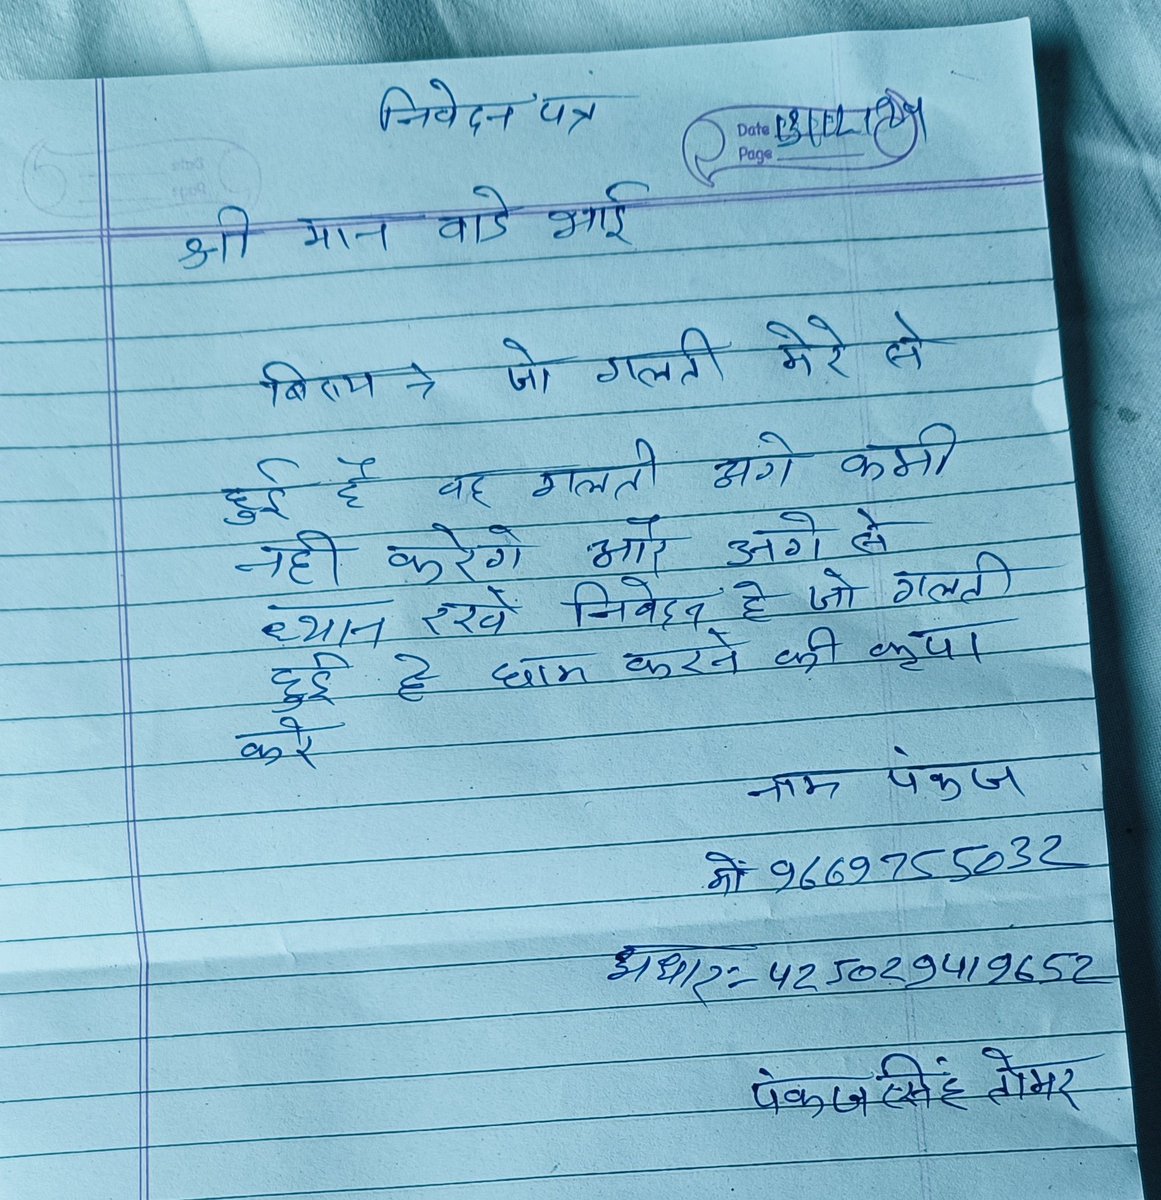 निवेदन पत्र
Date 13/02/24
Page
श्री मान वाडे भाई
जो गलती मेरे से
हुई है वह गलती अगे कभी
नही करेगे और अगे से
ध्यान रखे निवेदन है जो गलती
हुई है छाम करने की कृपा
करे
नाम पंकज
मो 9669755032
अधार = 425029419652
पंकज सिंह तोमर